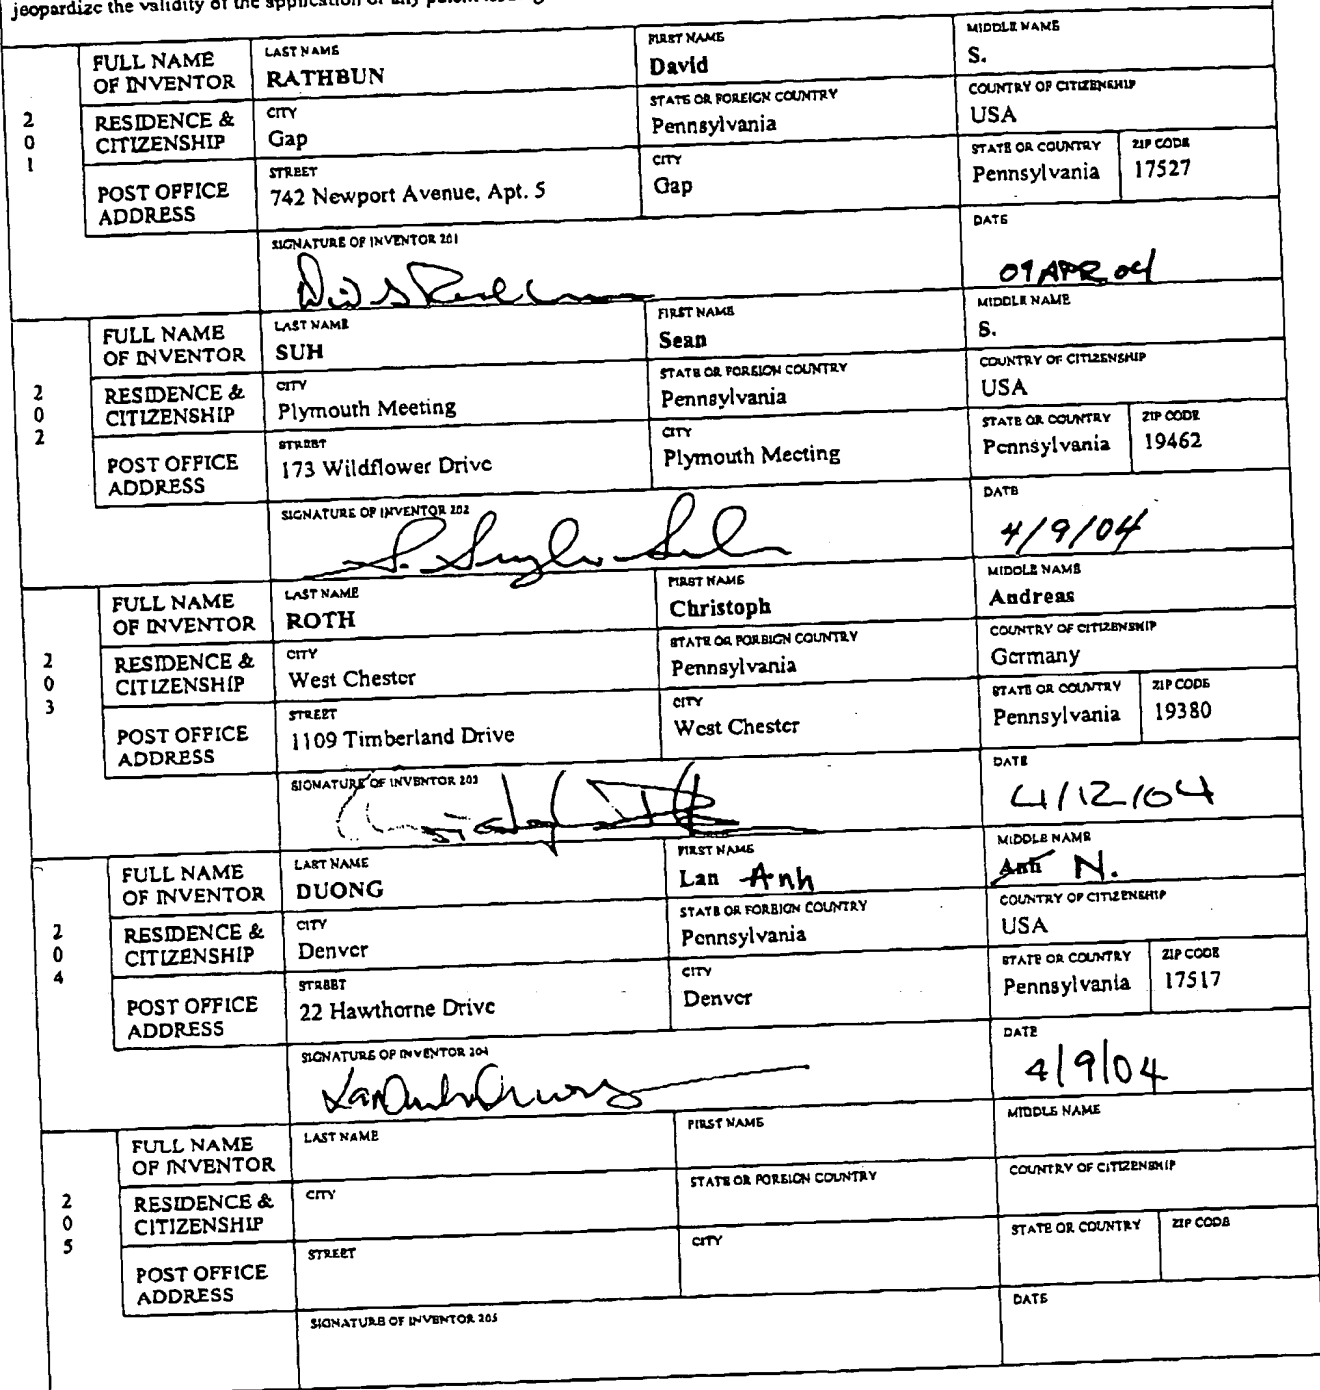 jeopardize the validity of the application or any patent
2 0 1
FULL NAME OF INVENTOR
LAST NAME RATHBUN
FIRST NAME David
MIDDLE NAME S.
RESIDENCE & CITIZENSHIP
CITY Gap
STATE OR FOREIGN COUNTRY Pennsylvania
COUNTRY OF CITIZENSHIP USA
POST OFFICE ADDRESS
STREET 742 Newport Avenue, Apt. 5
CITY Gap
STATE OR COUNTRY Pennsylvania
ZIP CODE 17527
SIGNATURE OF INVENTOR 201
DATE 09 APR 04
2 0 2
FULL NAME OF INVENTOR
LAST NAME SUH
FIRST NAME Sean
MIDDLE NAME S.
RESIDENCE & CITIZENSHIP
CITY Plymouth Meeting
STATE OR FOREIGN COUNTRY Pennsylvania
COUNTRY OF CITIZENSHIP USA
POST OFFICE ADDRESS
STREET 173 Wildflower Drive
CITY Plymouth Meeting
STATE OR COUNTRY Pennsylvania
ZIP CODE 19462
SIGNATURE OF INVENTOR 202
DATE 4/9/04
2 0 3
FULL NAME OF INVENTOR
LAST NAME ROTH
FIRST NAME Christoph
MIDDLE NAME Andreas
RESIDENCE & CITIZENSHIP
CITY West Chester
STATE OR FOREIGN COUNTRY Pennsylvania
COUNTRY OF CITIZENSHIP Germany
POST OFFICE ADDRESS
STREET 1109 Timberland Drive
CITY West Chester
STATE OR COUNTRY Pennsylvania
ZIP CODE 19380
SIGNATURE OF INVENTOR 203
DATE 4/12/04
2 0 4
FULL NAME OF INVENTOR
LAST NAME DUONG
FIRST NAME Lan Anh
MIDDLE NAME Anh N.
RESIDENCE & CITIZENSHIP
CITY Denver
STATE OR FOREIGN COUNTRY Pennsylvania
COUNTRY OF CITIZENSHIP USA
POST OFFICE ADDRESS
STREET 22 Hawthorne Drive
CITY Denver
STATE OR COUNTRY Pennsylvania
ZIP CODE 17517
SIGNATURE OF INVENTOR 204
DATE 4/9/04
2 0 5
FULL NAME OF INVENTOR
LAST NAME
FIRST NAME
MIDDLE NAME
RESIDENCE & CITIZENSHIP
CITY
STATE OR FOREIGN COUNTRY
COUNTRY OF CITIZENSHIP
POST OFFICE ADDRESS
STREET
CITY
STATE OR COUNTRY
ZIP CODE
SIGNATURE OF INVENTOR 205
DATE